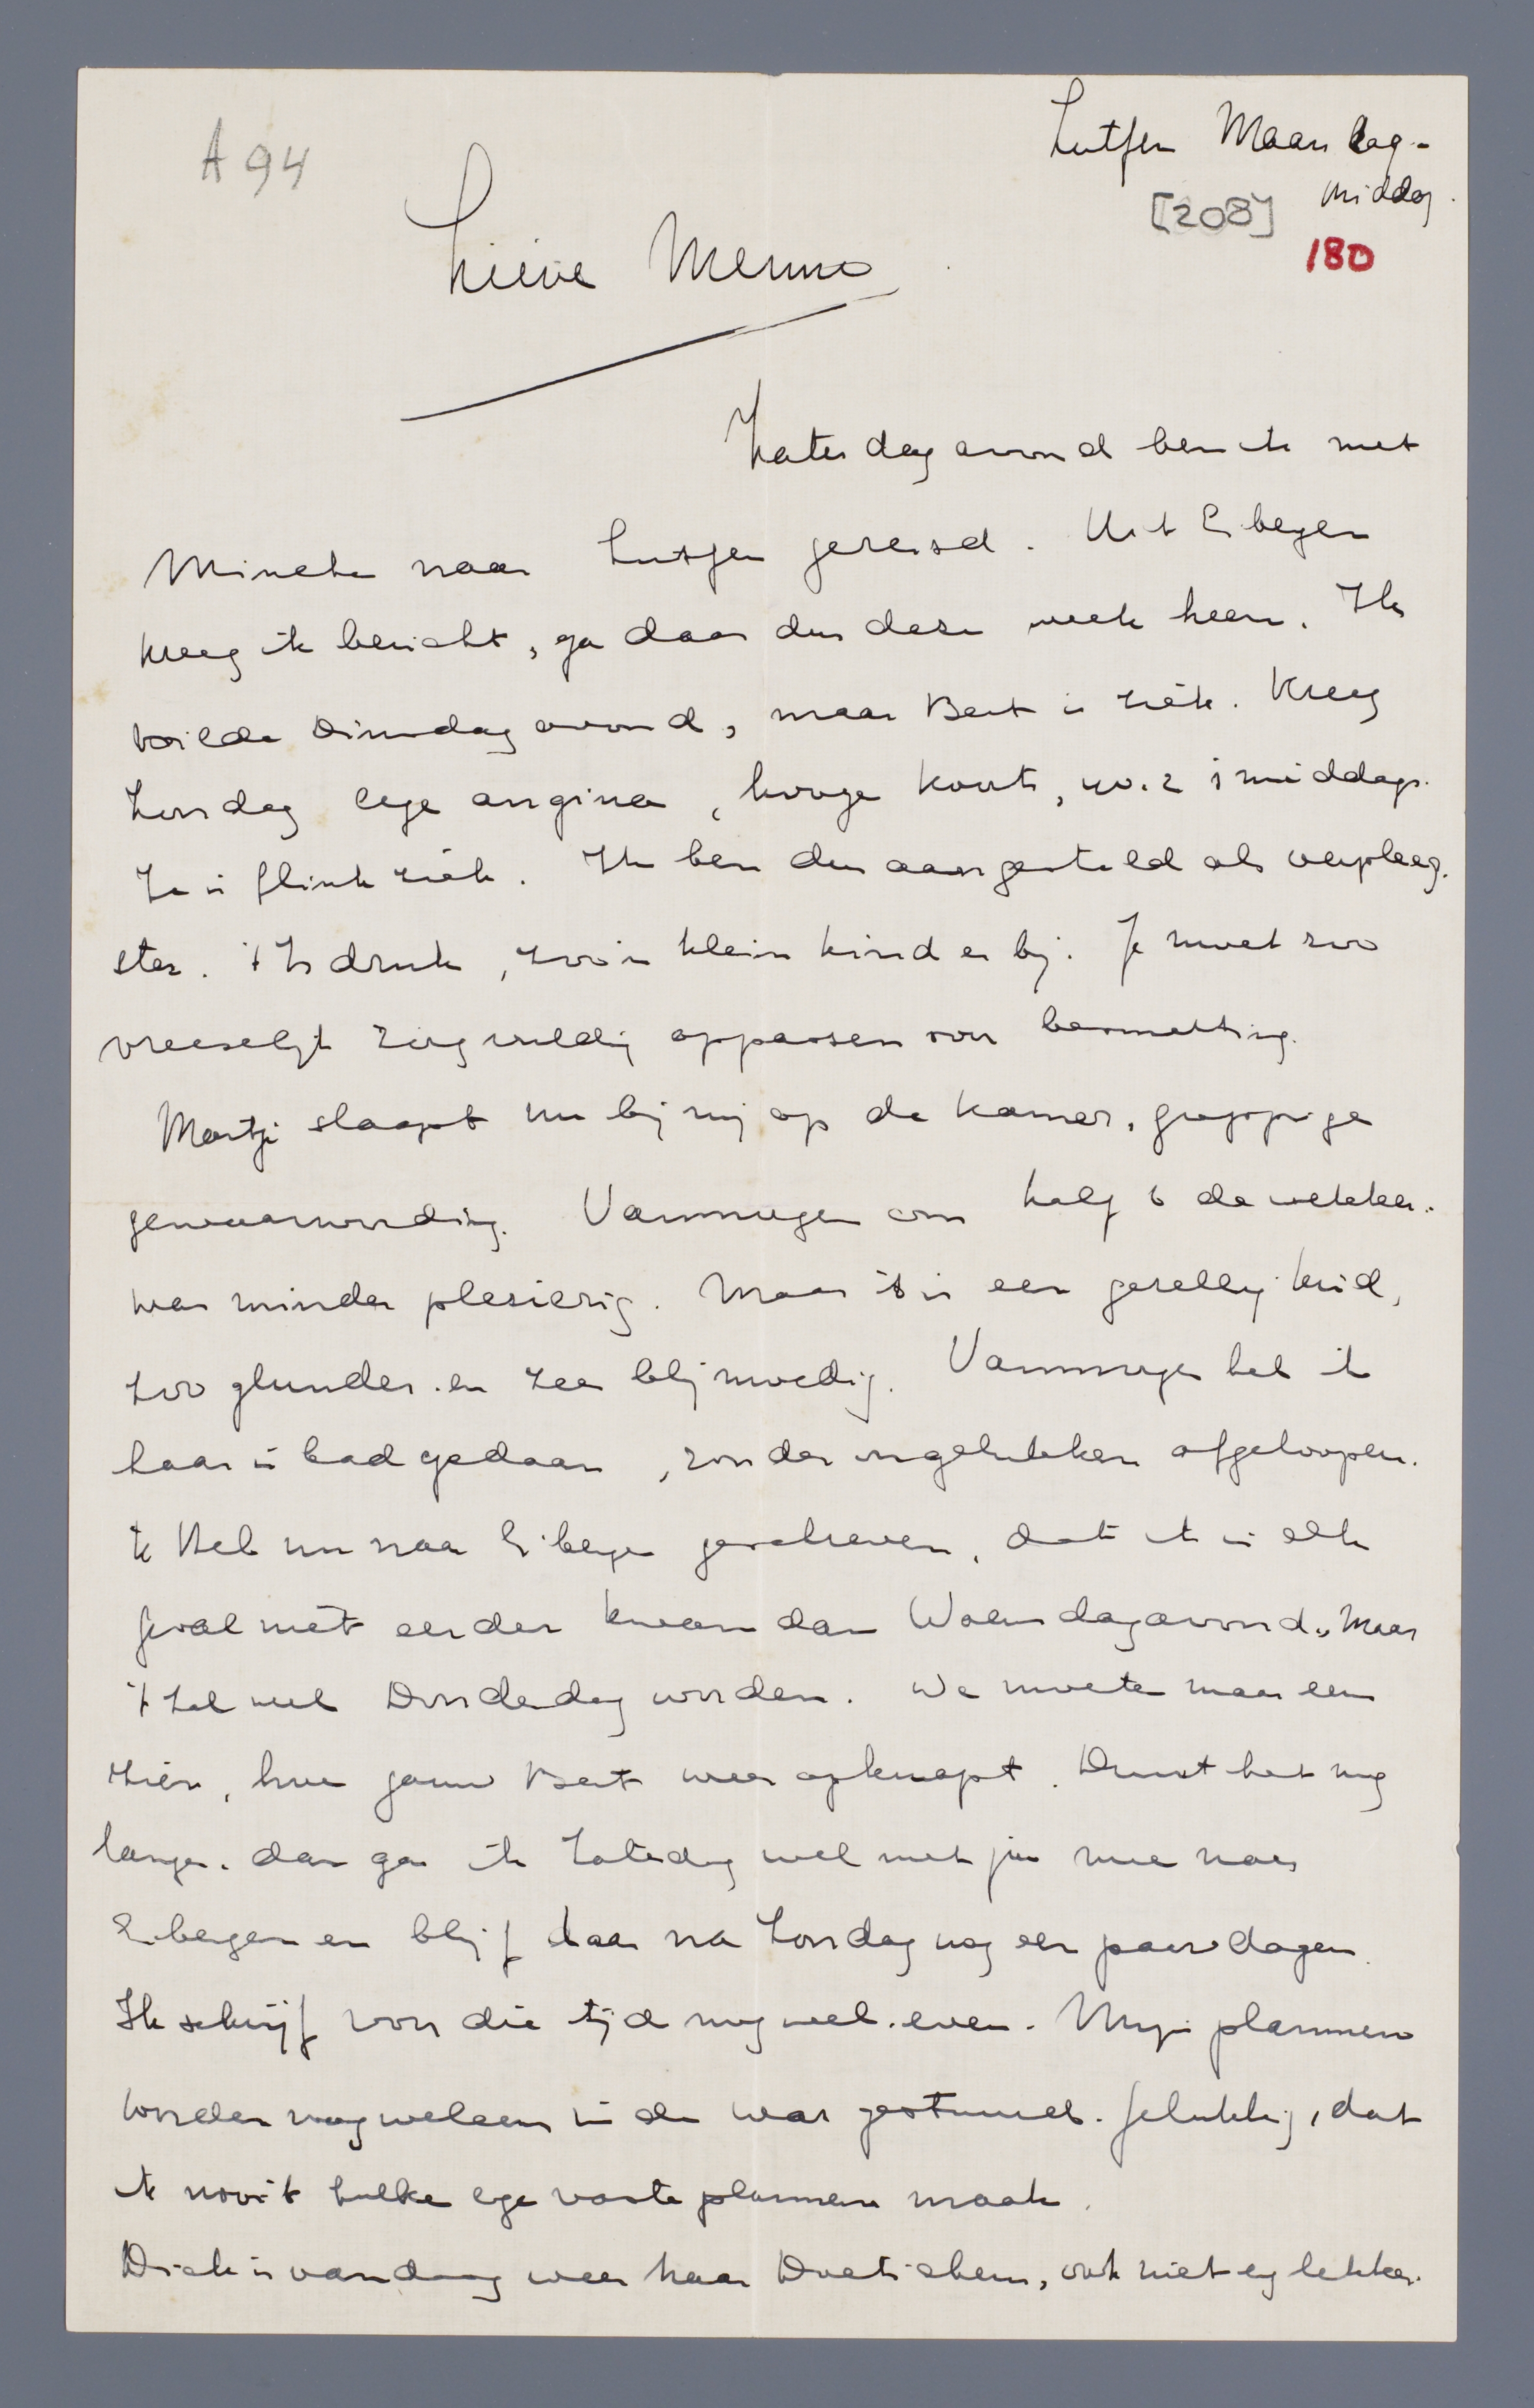 A 94
Zutfen Maandag-
middag.
[208]
180
Lieve Menno
Zaterdagavond ben ik met
Mineke naar Zutfen gereisd. Uit Eibergen
kreeg ik bericht, ga daar dus deze week heen. Ik
wilde Dinsdagavond, maar Bert is ziek. Kreeg
Zondag erge angina, hooge koorts, 40.2 's middags.
Ze is flink ziek. Ik ben dus aangesteld als verpleeg-
ster. 't Is druk, zoo'n klein kind er bij. Je moet zoo
vreeselijk zorgvuldig oppassen voor besmetting.
Martje slaapt nu bij mij op de kamer, grappige
gewaarwording. Vanmorgen om half 6 de wekker.
was minder plezierig. Maar 't is een gezellig kind,
zoo glunder en zee blijmoedig. Vanmorgen heb ik
haar in bad gedaan, zonder ongelukken afgeloopen.
Ik Heb nu naar Eibergen geschreven, dat ik in elk
geval niet eerder kwam dan Woensdagavond, Maar
't zal wel Donderdag worden. We moeten maar eens
zien, hoe gauw Bert weer opknapt. Duurt het nog
langer, dan ga ik Zaterdag wel met jou mee naar
Eibergen en blijf daar na Zondag nog een paar dagen.
Ik schrijf voor die tijd nog wel even. Mijn plannen
worden nog weleens in de war gestuurd. Gelukkig, dat
ik nooit zulke erge vaste plannen maak.
Dick is vandaag weer naar Doetichem, ook niet erg lekker.